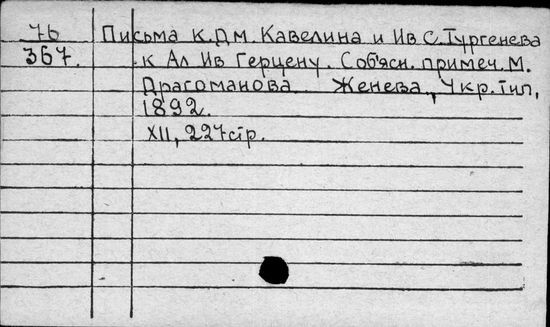 76 Письма К. Дм. Кавелина и Ив С. Тургенева
367. к Ал Ив Герцену. Собъясн. примеч. М.
Драгоманова Женева, Укр. тип,
1892.
XII, 227 стр.